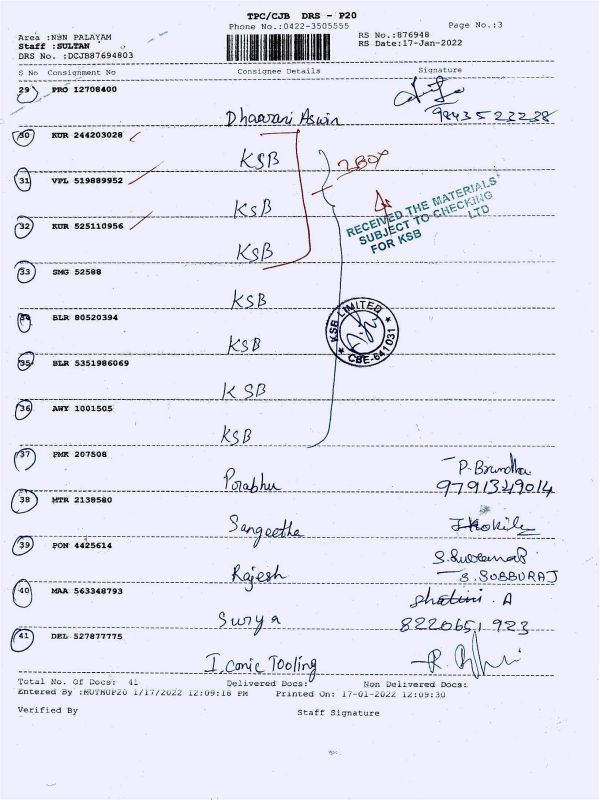 TPC/CJB DRS - P20
Phone No.:0422-3505555
Page No.:3
Area :NSN PALAYAM
RS No.:876948
Staff :SULTAN
RS Date:17-Jan-2022
DRS No. :DCJB87694803
S No Consignment No Consignee Details Signature
29 PRO 12708400
Dhaarani Aswin 9843523228
30 KUR 244203028
KSB
2 BOX
31 VPL 519889952
KSB
RECEIVED THE MATERIALS
SUBJECT TO CHECKING
FOR KSB LTD
32 KUR 525110956
KSB
33 SMG 52588
KSB
34 BLR 80520394
KSB LIMITED
CBE-641031
KSB
35 BLR 5351986069
KSB
36 AWY 1001505
KSB
37 PMK 207508
P. Brundha
Prabhu 9791349014
38 MTR 2138580
Sangeetha
39 PON 4425614
Rajesh S. SUBBURAJ
40 MAA 563348793
Shalini . A
Surya 8220651923
41 DEL 527877775
Iconic Tooling
Total No. Of Docs: 41 Delivered Docs: Non Delivered Docs:
Entered By :MUTHUP20 1/17/2022 12:09:18 PM Printed On: 17-01-2022 12:09:30
Verified By Staff Signature